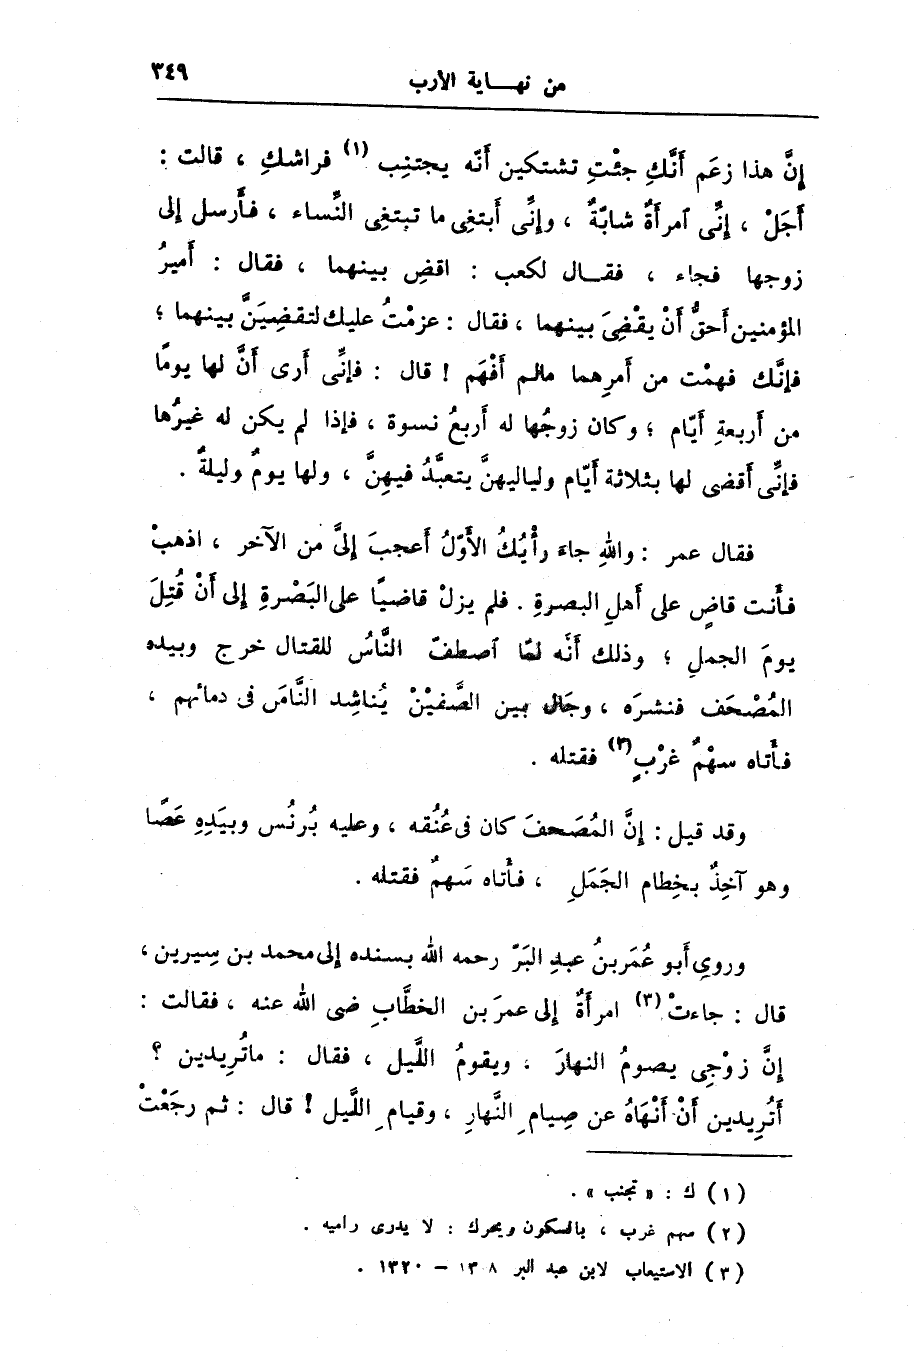 ٣٤٩
من نهـــاية الأرب
إنَّ هذا زعَم أَنَّكِ جئْتِ تشتكين أنّه يجتنِب (١) فراشكِ ، قالت :
أَجَلْ ، إنِّى ٱمرأةٌ شابّةٌ ، وإنِّى أبتغِى ما تبتغِى النِّساء ، فأَرسل إلى
زوجها فجاء ، فقــال لكعب : اقضِ بينهما ، فقال : أَميرُ
المؤمنين أحقُّ أَنْ يقْضِىَ بينهما ، فقال : عزمْتُ عليك لتقضِيَنَّ بينهما ؛
فإنَّك فهمْت من أمرِهما مالم أَفْهَم ! قال : فإنِّى أرى أَنَّ لها يومًا
من أربعةِ أيّام ؛ وكان زوجُها له أربعُ نسوة ، فإذا لم يكن له غيرُها
فإنِّى أقضى لها بثلاثة أيّام ولياليهنَّ يتعبَّدُ فيهِنَّ ، ولها يومٌ وليلةٌ .
فقال عمر : واللهِ جاءَ رأْيُكُ الأوّلُ أعجبَ إلىَّ من الآخر ، اذهبْ
فأَنت قاضٍ على أهلِ البصرةِ . فلم يزلْ قاضيًا على البَصْرةِ إلى أَنْ قُتِلَ
يومَ الجملِ ؛ وذلك أَنّه لمّا ٱصطفّ النَّاسُ للقتال خرج وبيده
المُصْحَف فنشرَه ، وجَال بين الصَّفيْنْ يُناشِد النَّاسَ فى دمائهم ،
فأَتاه سهْمٌ غرْبٍ (٢) فقتله .
وقد قيل : إنَّ المُصَحفَ كان فى عُنُقه ، وعليه بُرنُس وبيَدِهِ عَصًا
وهو آخِذٌ بخِطام الجَمَلِ ، فأَتاه سَهمٌ فقتله .
وروىِ أَبو عُمَر بنُ عبدِ البَرّ رحمه الله بسنده إلى محمد بن سِيرين ،
قال : جاءتْ (٣) امرأةٌ إلى عمرَ بن الخطَّابِ ضى الله عنه ، فقالت :
إنَّ زوْجِى يصومُ النهارَ ، ويقومُ اللَّيل ، فقال : ماتُريدين ؟
أَتُرِيدين أَنْ أَنْهَاهُ عن صِيامِ النَّهارِ ، وقيامِ اللَّيل ! قال : ثم رجَعَْتْ
(١) ك : « تجنب » .
(٢) سهم غرب ، بالسكون ويحرك : لا يدرى راميه .
(٣) الاستيعاب لابن عبد البر ١٣٠٨ – ١٣٢٠ .